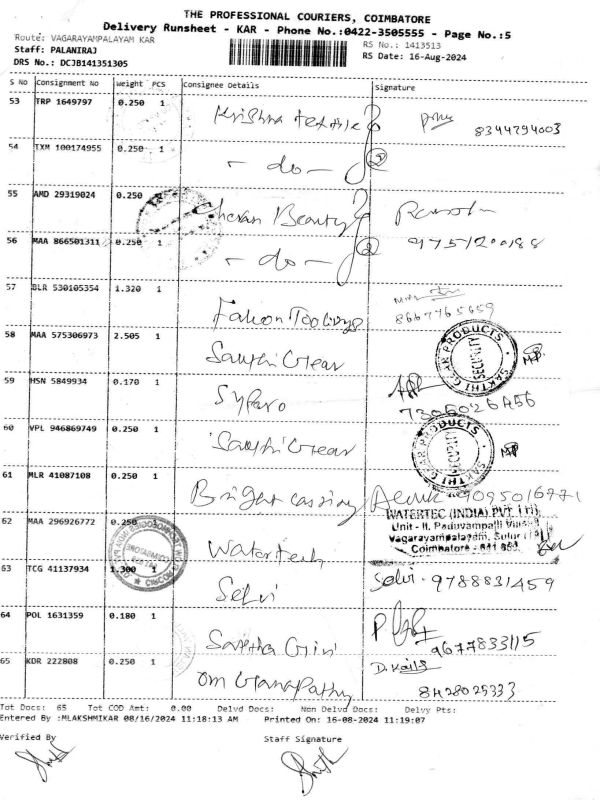 THE PROFESSIONAL COURIERS, COIMBATORE
Delivery Runsheet - KAR - Phone No.:0422-3505555 - Page No.:5
Route: VAGARAYAMPALAYAM KAR
RS No.: 1413513
Staff: PALANIRAJ
RS Date: 16-Aug-2024
DRS No.: DCJB141351305
S No Consignment No Weight PCS Consignee Details Signature
53 TRP 1649797 0.250 1 Krishna textile 8344794003
54 TXM 100174955 0.250 1 - do -
55 AMD 29319024 0.250 Cheran Beauty
56 MAA 866501311 0.250 1 - do - 9751200188
57 BLR 530105354 1.320 1 Falcon Toolings 8667765659
58 MAA 575306973 2.505 1 Santhi Gear
SAKTHI GEAR PRODUCTS
SECURITY
59 HSN 5849934 0.170 1 7305026456
60 VPL 946869749 0.250 1 Santhi Gear
SAKTHI GEAR PRODUCTS
SECURITY
61 MLR 41087108 0.250 1 Bright cassing 9095016771
62 MAA 296926772 0.250 1 Watertech
WATERTEC (INDIA) PVT. LTD
Unit - II, Paduvampalli Village
Vagarayampalayam, Sulur (TK)
Coimbatore - 641 659
63 TCG 41137934 1.300 1 Selvi Selvi. 9788831459
64 POL 1631359 0.180 1 Saptha Giri 9677833115
65 KDR 222808 0.250 1 Om Ganapathy 8428025333
Tot Docs: 65 Tot COD Amt: 0.00 Delvd Docs: Non Delvd Docs: Delvy Pts:
Entered By :MLAKSHMIKAR 08/16/2024 11:18:13 AM Printed On: 16-08-2024 11:19:07
Verified By Staff Signature